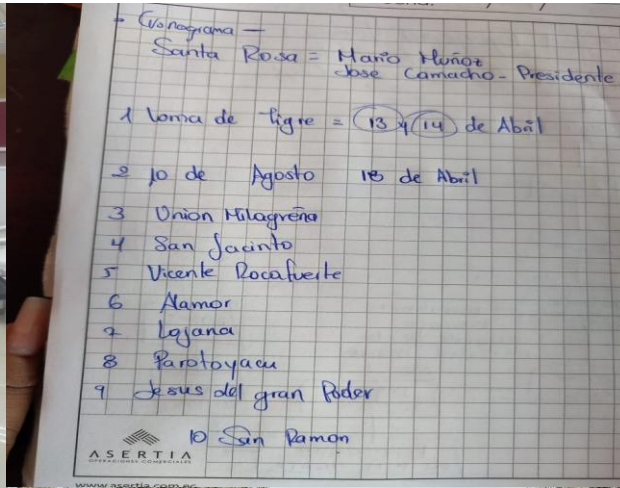 - Cronograma —
Santa Rosa = Mario Muñoz
Jose Camacho - Presidente
1 Loma de Tigre = 13 y 14 de Abril
2 10 de Agosto 18 de Abril
3 Union Milagreña
4 San Jacinto
5 Vicente Rocafuerte
6 Alamor
7 Lojana
8 Parotoyacu
9 Jesus del gran Poder
10 San Ramon
ASERTIA
OPERACIONES COMERCIALES
www.asertia.com.ec